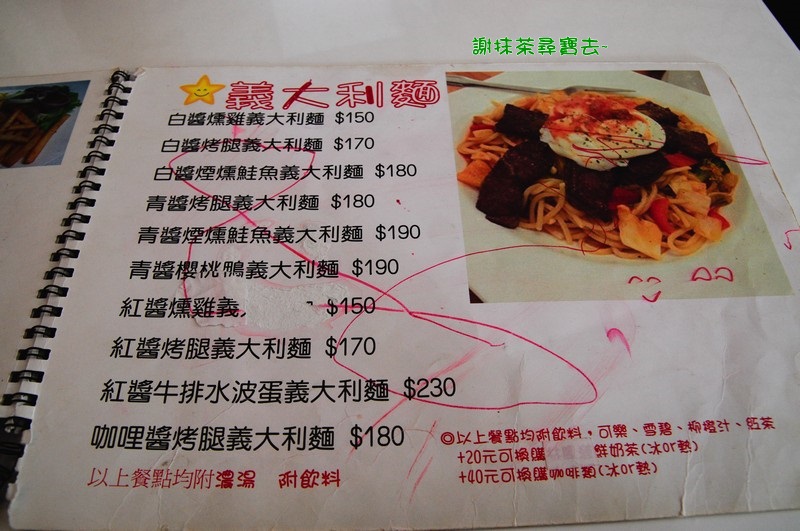 謝抹茶尋寶去~
義大利麵
白醬燻雞義大利麵 $150
白醬烤腿義大利麵 $170
白醬煙燻鮭魚義大利麵 $180
青醬烤腿義大利麵 $180
青醬煙燻鮭魚義大利麵 $190
青醬櫻桃鴨義大利麵 $190
紅醬燻雞義 $150
紅醬烤腿義大利麵 $170
紅醬牛排水波蛋義大利麵 $230
咖哩醬烤腿義大利麵 $180
以上餐點均附濃湯 附飲料
◎以上餐點均附飲料，可樂、雪碧、柳橙汁、紅茶
+20元可換購 鮮奶茶(冰or熱)
+40元可換購咖啡類(冰or熱)